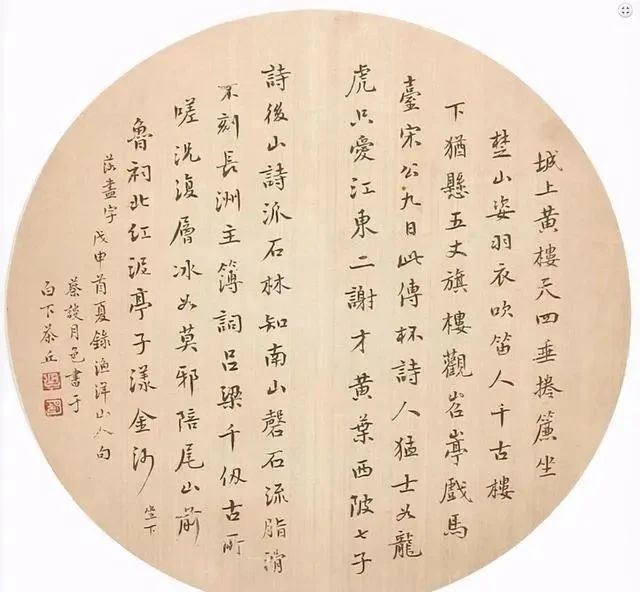 城上黃樓天四垂捲簾坐
楚山姿羽衣吹笛人千古樓
下猶懸五丈旗樓觀岧亭戲馬
臺宋公九日此傳杯詩人猛士如龍
虎只愛江東二謝才黃葉西陂七子
詩後山詩派石林知南山磬石流脂滑
不刻長洲主簿詞呂梁千仞古所
嗟況復層冰如莫邪陪尾山前
魯祠北紅泥亭子漾金沙 坐下
落畫字 戊申首夏錄漁洋山人句
蔡談月色書于
白下茶丘